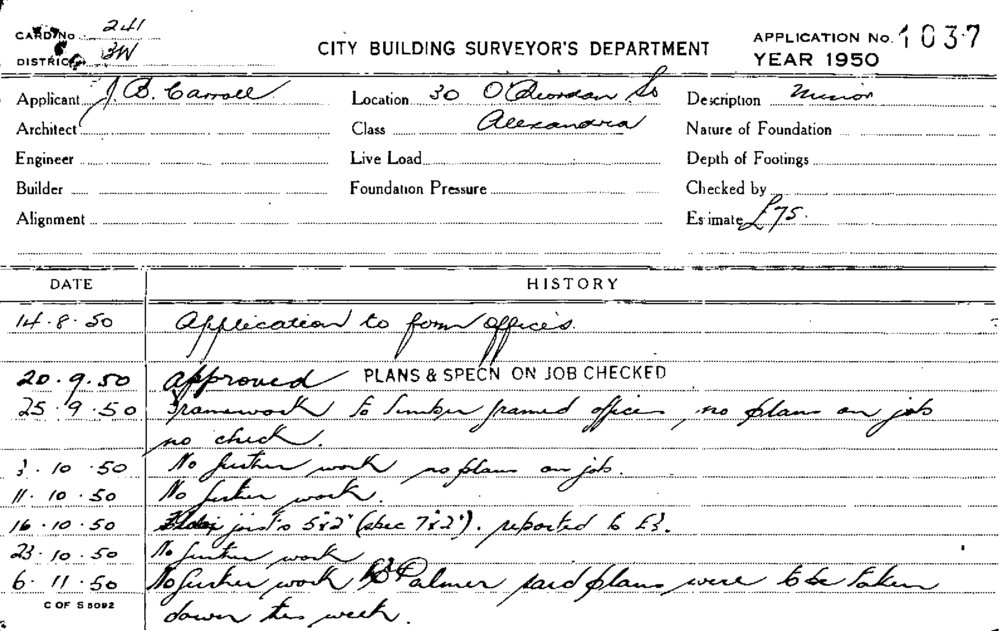 CARD No. 241
DISTRICT 3W
CITY BUILDING SURVEYOR'S DEPARTMENT
APPLICATION No. 1037
YEAR 1950
Applicant J. B. Carroll Location 30 O'Riordan St Description Minor
Architect Class Alexandria Nature of Foundation
Engineer Live Load Depth of Footings
Builder Foundation Pressure Checked by
Alignment Estimate £75.
DATE HISTORY
14.8.50 Application to form offices.
20.9.50 Approved PLANS & SPECN ON JOB CHECKED
25.9.50 Framework to timber framed offices no plans on job
no check.
3.10.50 No further work no plans on job.
11.10.50 No further work.
16.10.50 joists 5"x2" (spec 7"x2"). reported to
23.10.50 No further work
6.11.50 No further work Palmer said plans were to be taken
down this week.
C OF S 5092